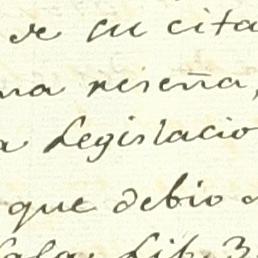 de su cita
na reseña,
a Legislacio
que debio
Lib. 3